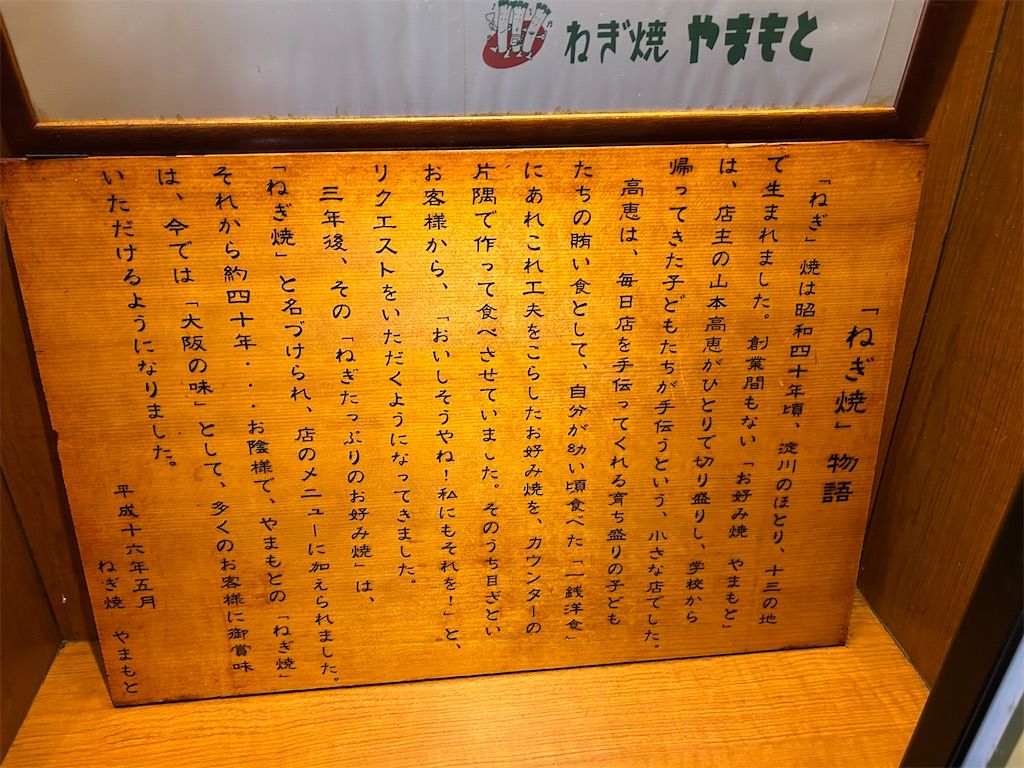 ねぎ焼 やまもと
「ねぎ焼」物語
「ねぎ」焼は昭和四十年頃、淀川のほとり、十三の地
で生まれました。創業間もない「お好み焼 やまもと」
は、店主の山本高恵がひとりで切り盛りし、学校から
帰ってきた子どもたちが手伝うという、小さな店でした。
高恵は、毎日店を手伝ってくれる育ち盛りの子ども
たちの賄い食として、自分が幼い頃食べた「一銭洋食」
にあれこれ工夫をこらしたお好み焼を、カウンターの
片隅で作って食べさせていました。そのうち目ざとい
お客様から、「おいしそうやね!私にもそれを!」と、
リクエストをいただくようになってきました。
三年後、その「ねぎたっぷりのお好み焼」は、
「ねぎ焼」と名づけられ、店のメニューに加えられました。
それから約四十年・・・お陰様で、やまもとの「ねぎ焼」
は、今では「大阪の味」として、多くのお客様に御賞味
いただけるようになりました。
平成十六年五月
ねぎ焼 やまもと